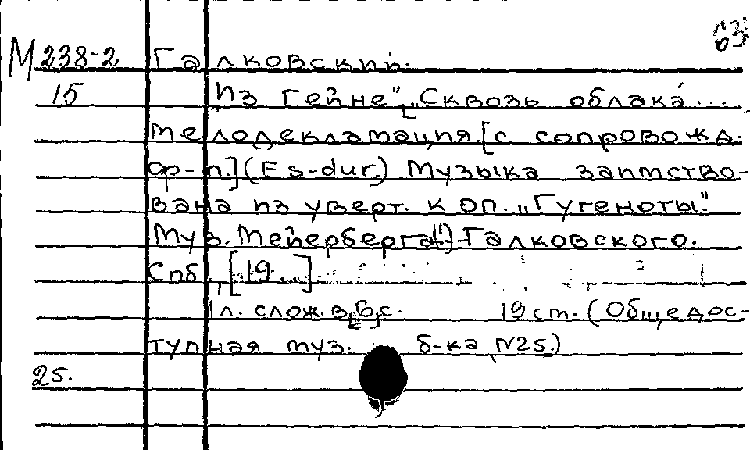 63
М 238-2 Галковский.
15 Из Гейне" [„Сквозь облака́....
Мелодекламация. [с сопровожд.
ф-п.] (Es-dur.) Музыка заимство-
вана из уверт. к оп. „Гугеноты".
Муз. Мейерберга (!)-Галковского.
Спб., [19...]
1 л. слож. в 8,с. 19 ст. (Общедос-
тупная муз. б-ка N25.)
25.